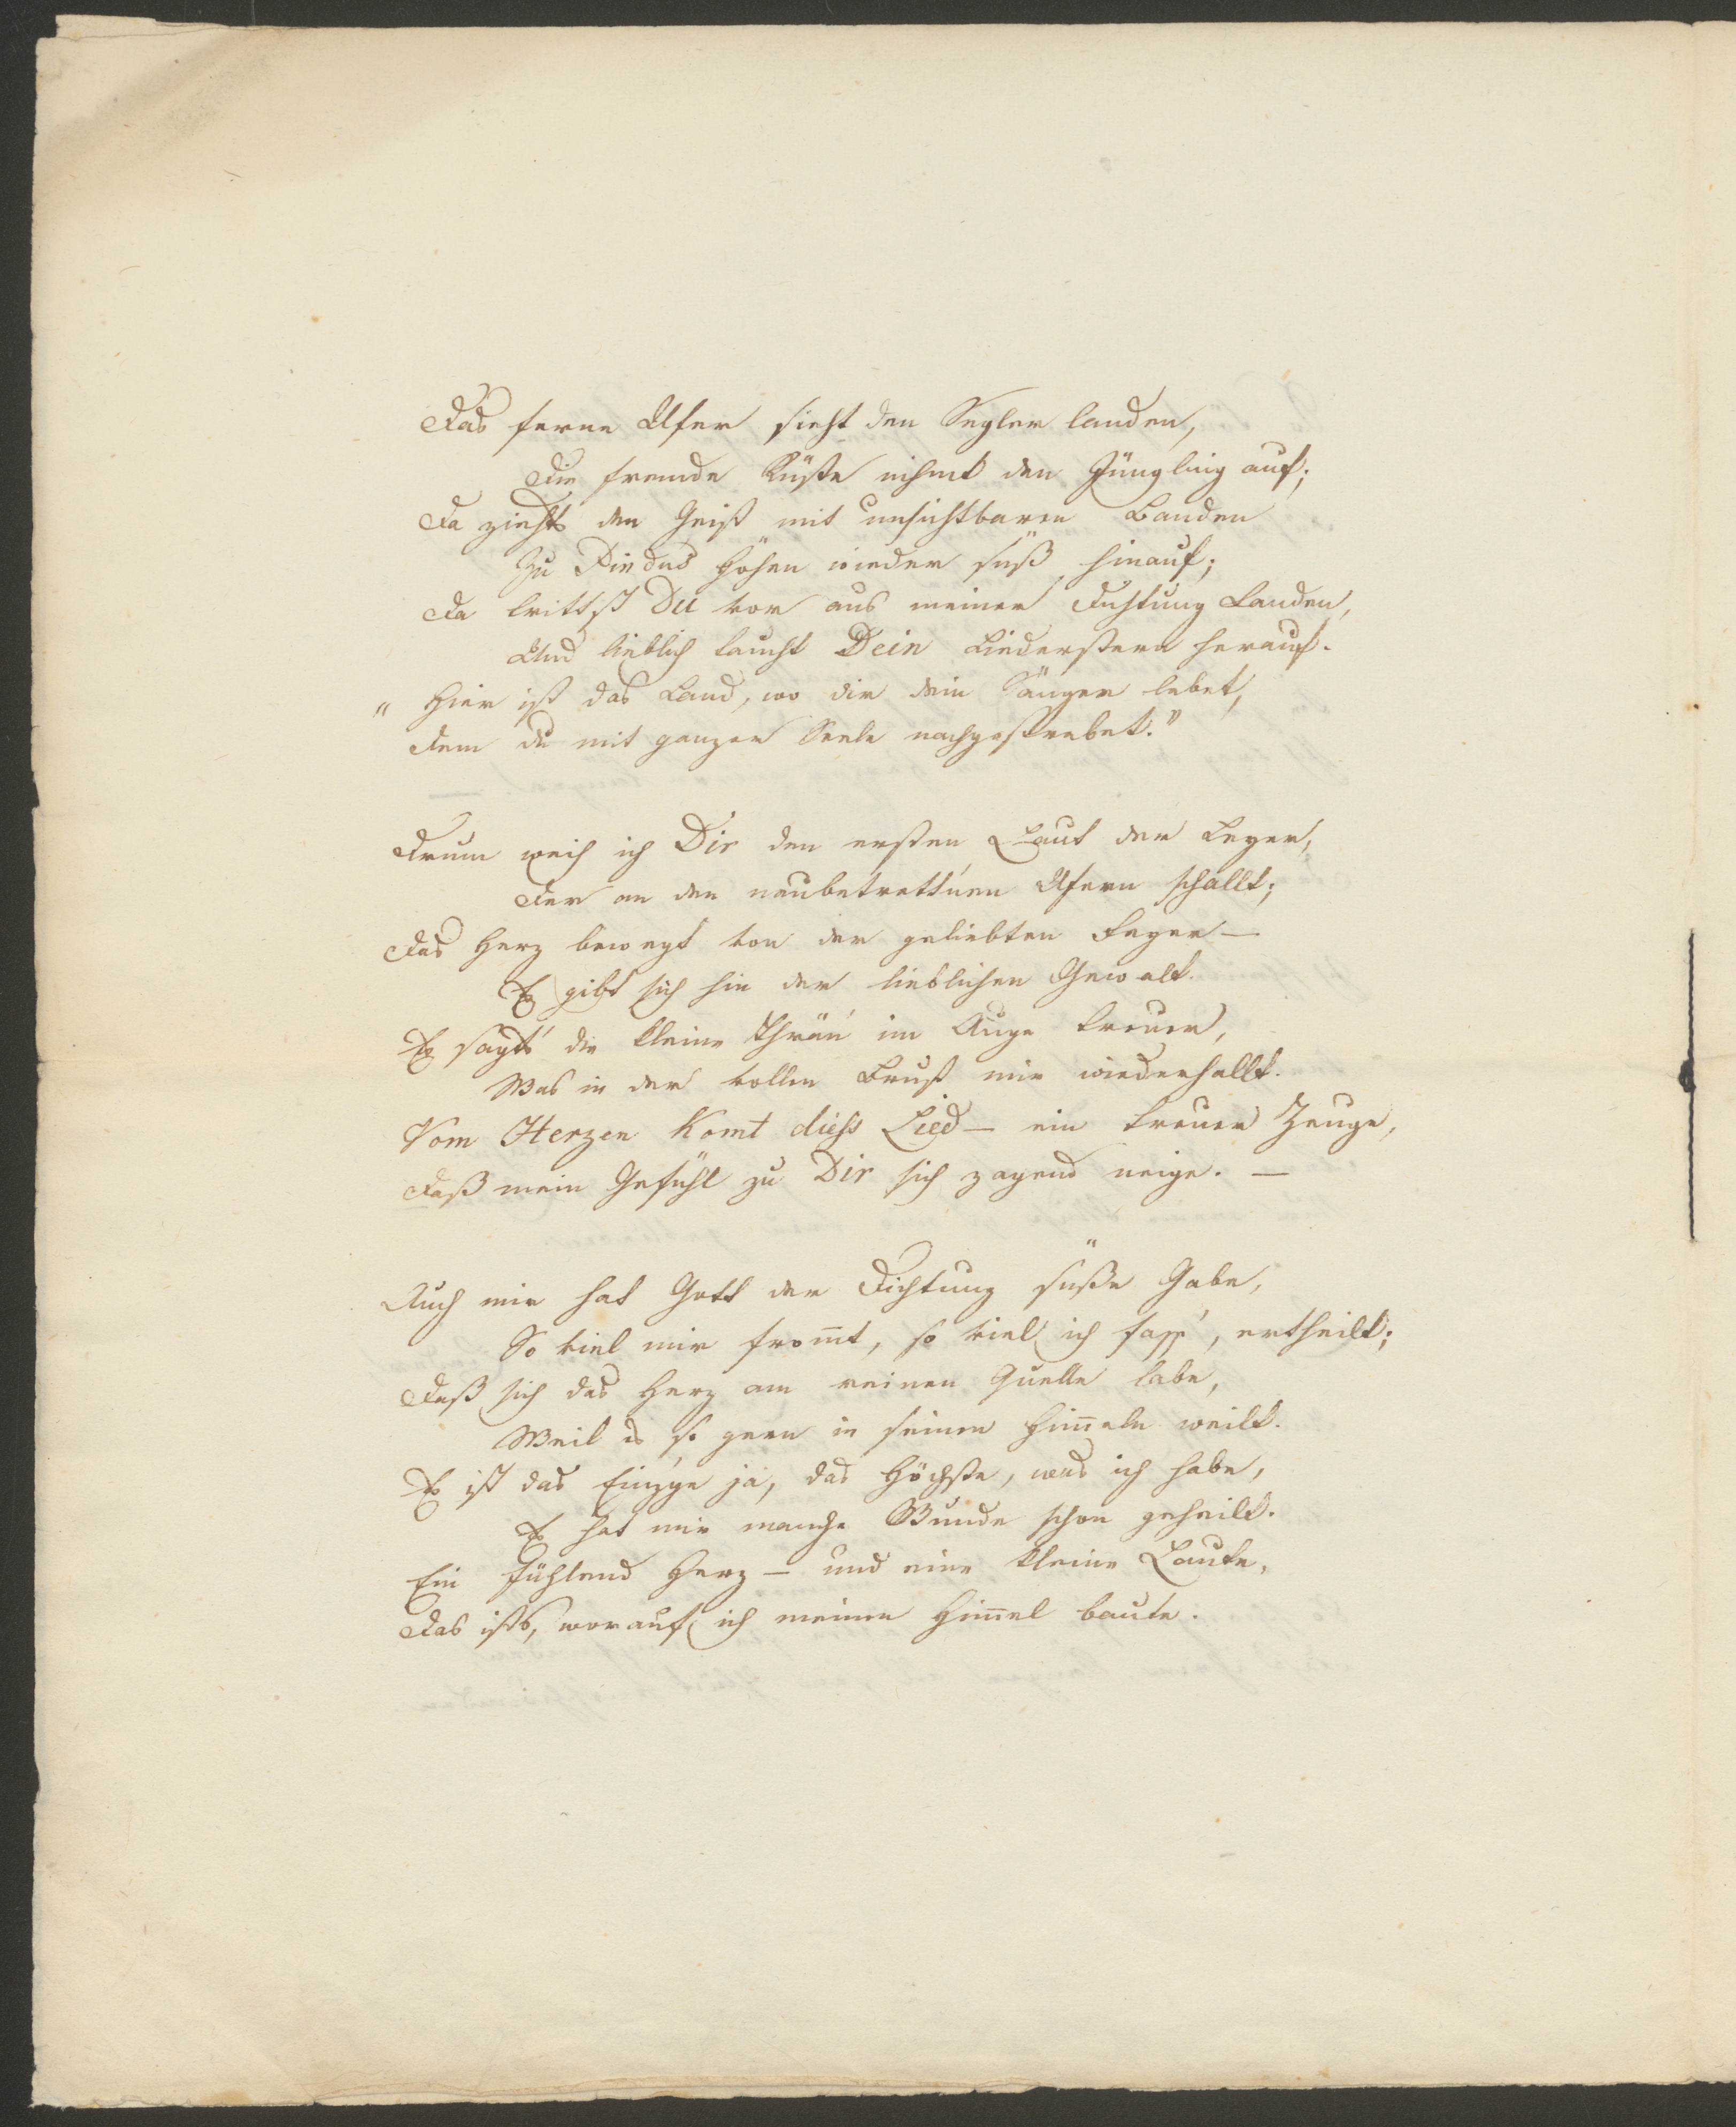 Das ferne Ufer sieht den Segler landen,
Die fremde Küste nihmt den Jüngling auf;
Da ziehts den Geist mit unsichtbaren Banden
Zu Pindus Höhen wieder süß hinauf;
Da trittst Du vor aus meiner Dichtung Landen,
Und lieblich taucht Dein Liederstern herauf.
„Hier ist das Land, wo dir dein Sänger lebet,
Dem du mit ganzer Seele nachgestrebet."
Drum weih ich Dir den ersten Laut der Leyer,
Der an den neubetrett'nen Ufern schallt;
Das Herz bewegt von der geliebten Feyer —
Es gibt sich hin der lieblichen Gewalt.
Es sagt's die kleine Thrän' im Auge treuer,
Was in der vollen Brust mir wiederhallt.
Vom Herzen komt diess Lied — ein treuer Zeuge,
Daß mein Gefühl zu Dir sich zagend neige. —
Auch mir hat Gott der Dichtung süße Gabe,
So viel mir from̅t, so viel ich fass', ertheilt;
Daß sich das Herz am reinen Quelle labe,
Weil es so gern in seinen Him̅eln weilt.
Es ist das Einz'ge ja, das Höchste, was ich habe,
Es hat mir manche Wunde schon geheilt.
Ein fühlend Herz — und eine kleine Laute,
Das ists, worauf ich meinen Him̅el baute.